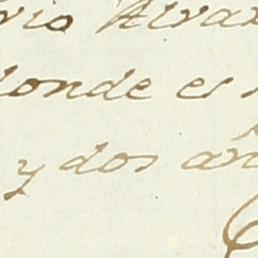 vio Alvar
donde es
y dos añ